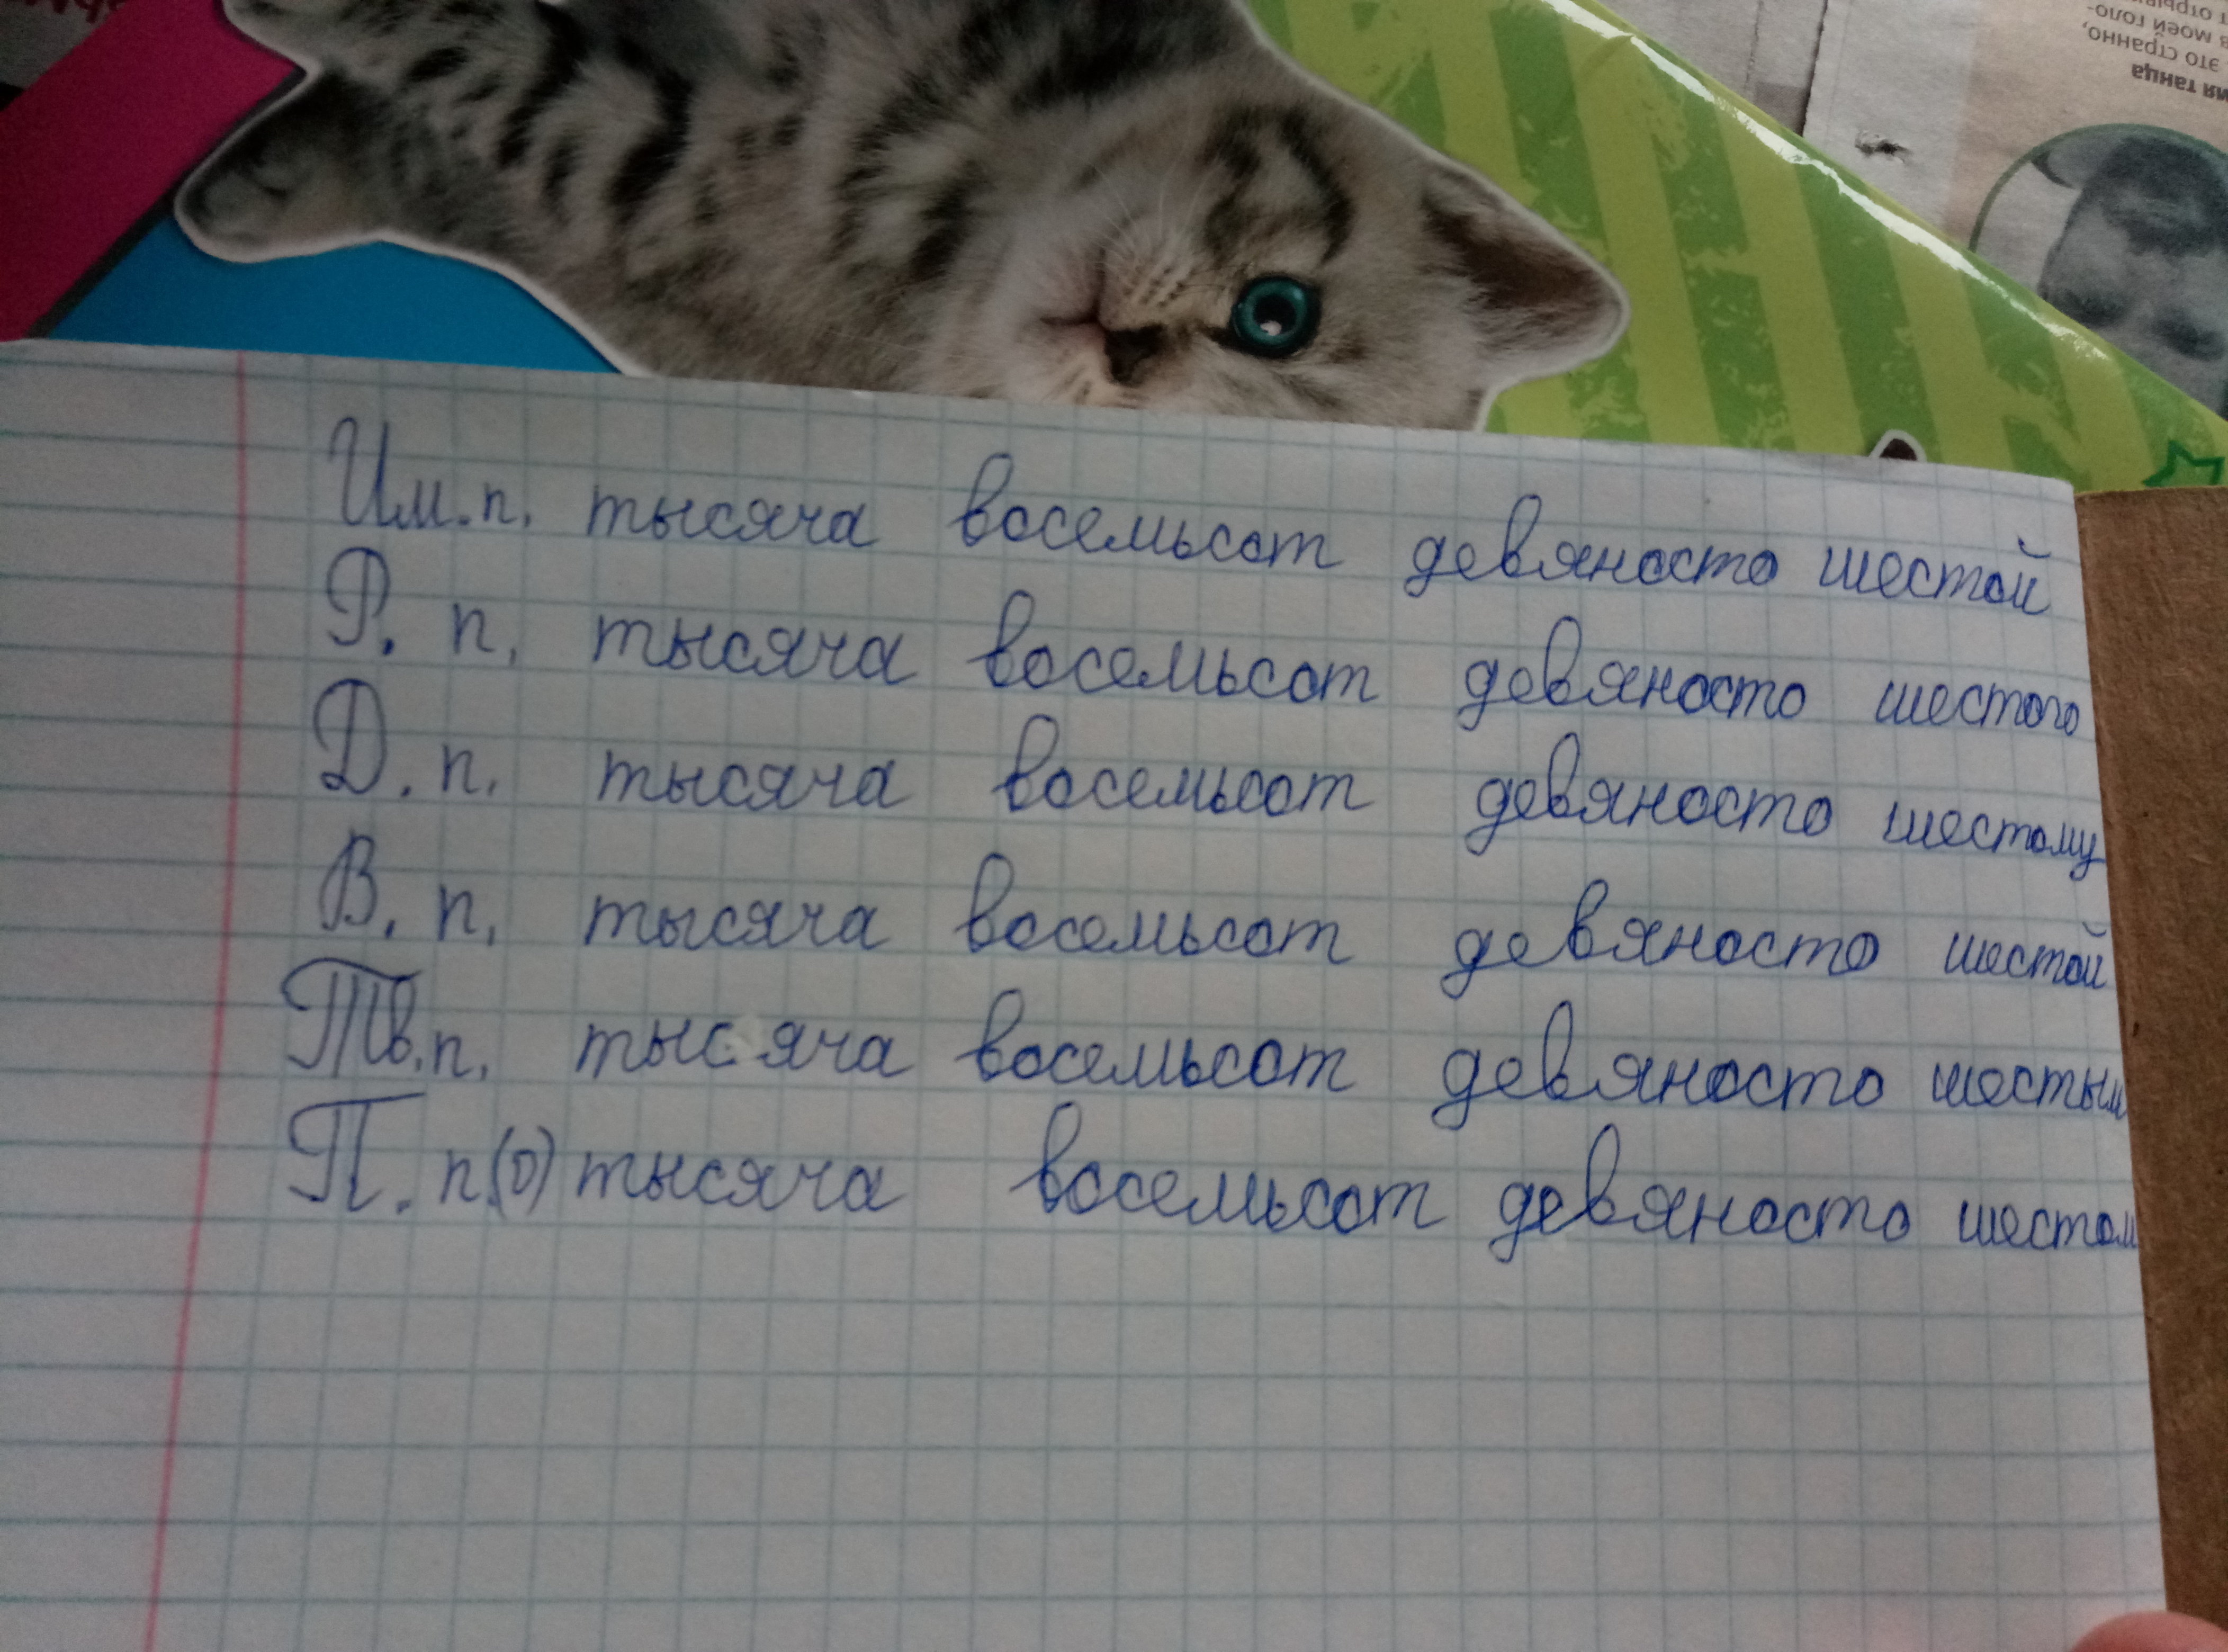 Им.п. тысяча восемьсот девяносто шестой
Р. п. тысяча восемьсот девяносто шестого
Д. п. тысяча восемьсот девяносто шестому
В. п. тысяча восемьсот девяносто шестой
Тв.п. тысяча восемьсот девяносто шестым
П. п.(о) тысяча восемьсот девяносто шестом
ия танца
это странно,
в моей голо-